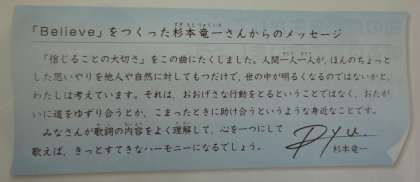 「Believe」をつくった杉本竜一さんからのメッセージ
「信じることの大切さ」をこの曲にたくしました。人間一人一人が、ほんのちょっと
した思いやりを他人や自然に対してもつだけで、世の中が明るくなるのではないかと、
わたしは考えています。それは、おおげさな行動をとるということではなく、おたが
いに道をゆずり合うとか、こまったときに助け合うというような身近なことです。
みなさんが歌詞の内容をよく理解して、心を一つにして
歌えば、きっとすてきなハーモニーになるでしょう。
Ryu
杉本竜一